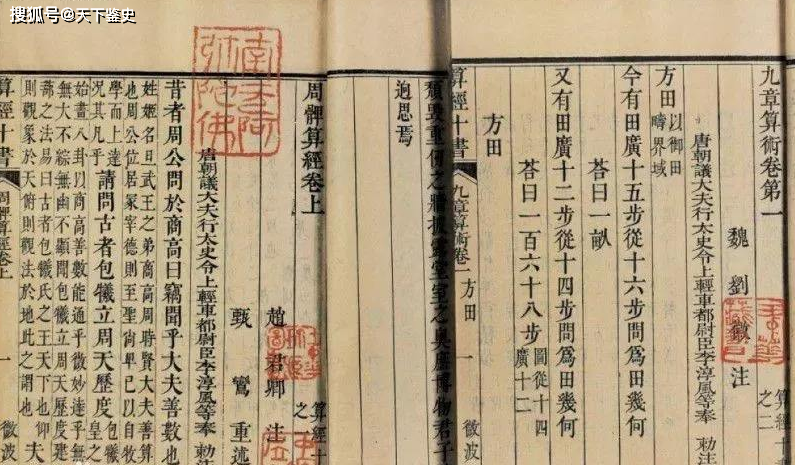 搜狐号@天下鉴史
九章算術卷第一
之二
魏 劉徽 注
唐朝議大夫行太史令上輕車都尉臣李淳風等奉 勅注
方田以御田疇界域
今有田廣十五步從十六步問爲田幾何
荅曰一畝
又有田廣十二步從十四步問爲田幾何
荅曰一百六十八步圖從十四廣十二
方田
算經十書 九章算術卷一 方田 一 微波
頹毀重仞之牆披露堂室之奧庶博物君子
迥思焉
周髀算經卷上
算經十 之一
趙君卿 注
甄鸞 重述
唐朝議大夫行太史令上輕車都尉臣李淳風等奉 勅注
南無阿彌陀佛
昔者周公問於商高曰竊聞乎大夫善數也
姓姬名旦武王之弟商高周時賢大夫善
也周公位居冢宰德則至聖尚卑己以自牧
學而上達況其凡乎請問古者包犧立周天歷度包犧皇之
始畫八卦以商高善數能通乎微妙達乎無
無大不綜無幽不顯聞包犧立周天歷度建
蔀之法易曰古者包犧氏之王天下也仰
則觀象於天俯則觀法於地此之謂也 夫
算經十書 周髀算經卷上 一 微波